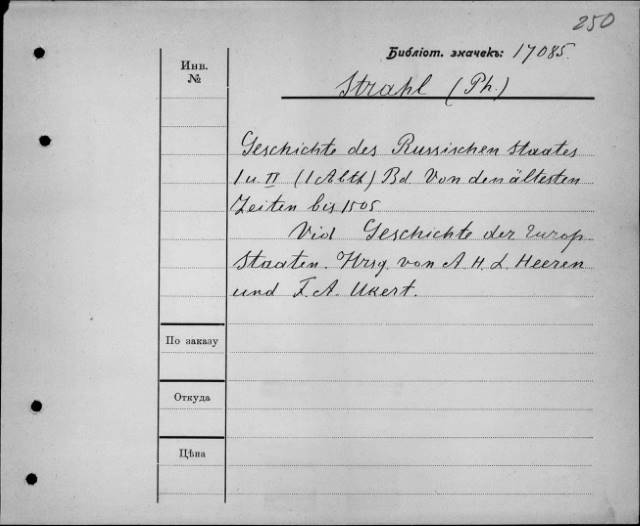 250
Библіот. значекъ: 17085.
Инв.
№
Strahl (Ph.)
Geschichte des Russischen Staates
I u II (1 Abth) Bd. Von den ältesten
Zeiten bis 1505
Vid Geschichte der Europ.
Staaten. Hrsg. von A. H. L. Heeren
und F. A. Ukert.
По заказу
Откуда
Цѣна